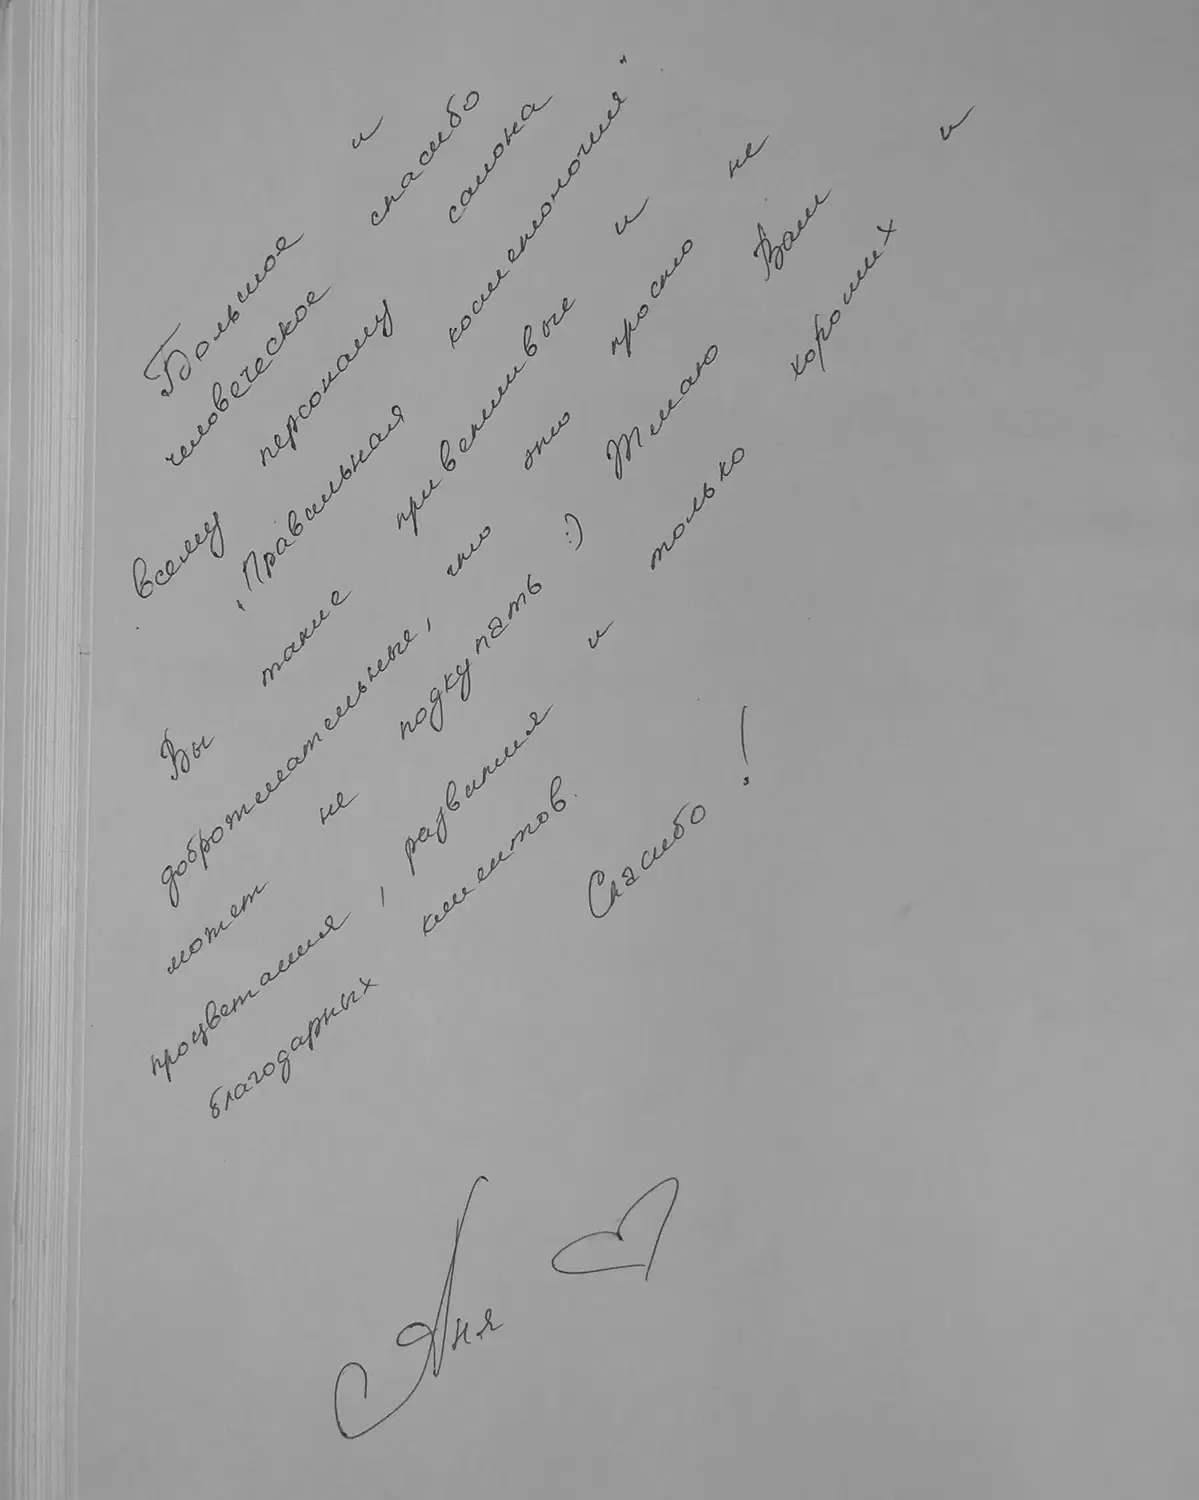 Большое и
человеческое спасибо
всему персоналу салона
"Правильная косметология"
Вы такие приветливые и
доброжелательные, что это просто не
может не подкупать :) Желаю Вам
процветания, развития и только хороших и
благодарных клиентов.
Спасибо!
Аня